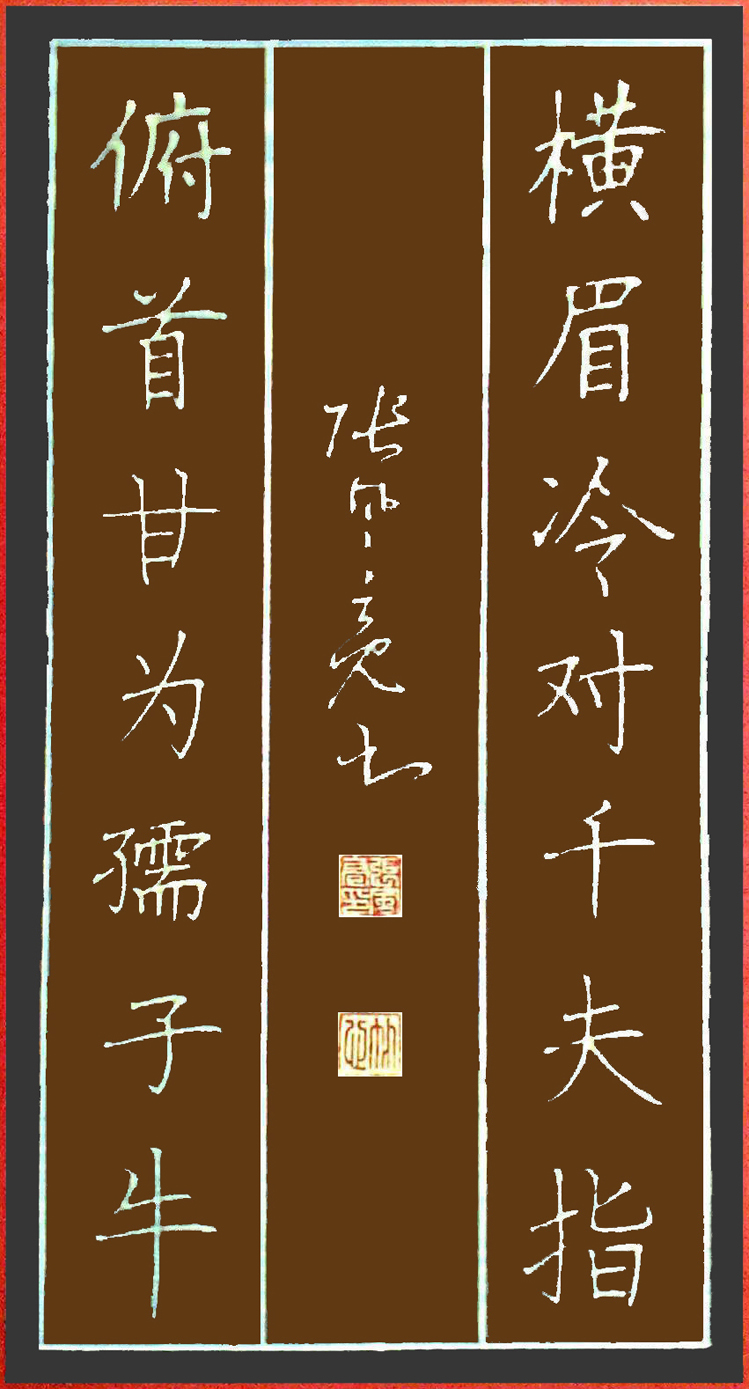 横眉冷对千夫指
张风亮书
俯首甘为孺子牛